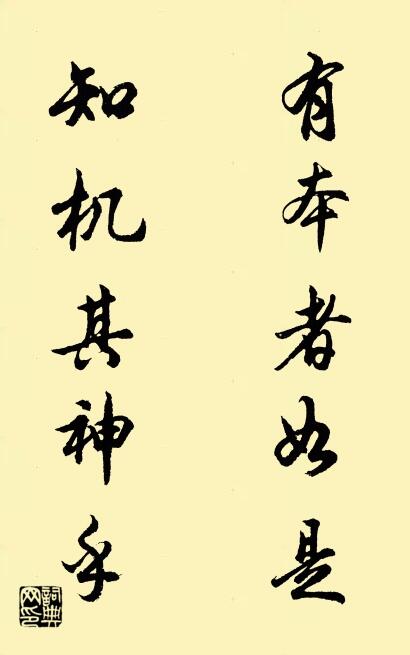 有本者如是
知机其神乎
詞典网印